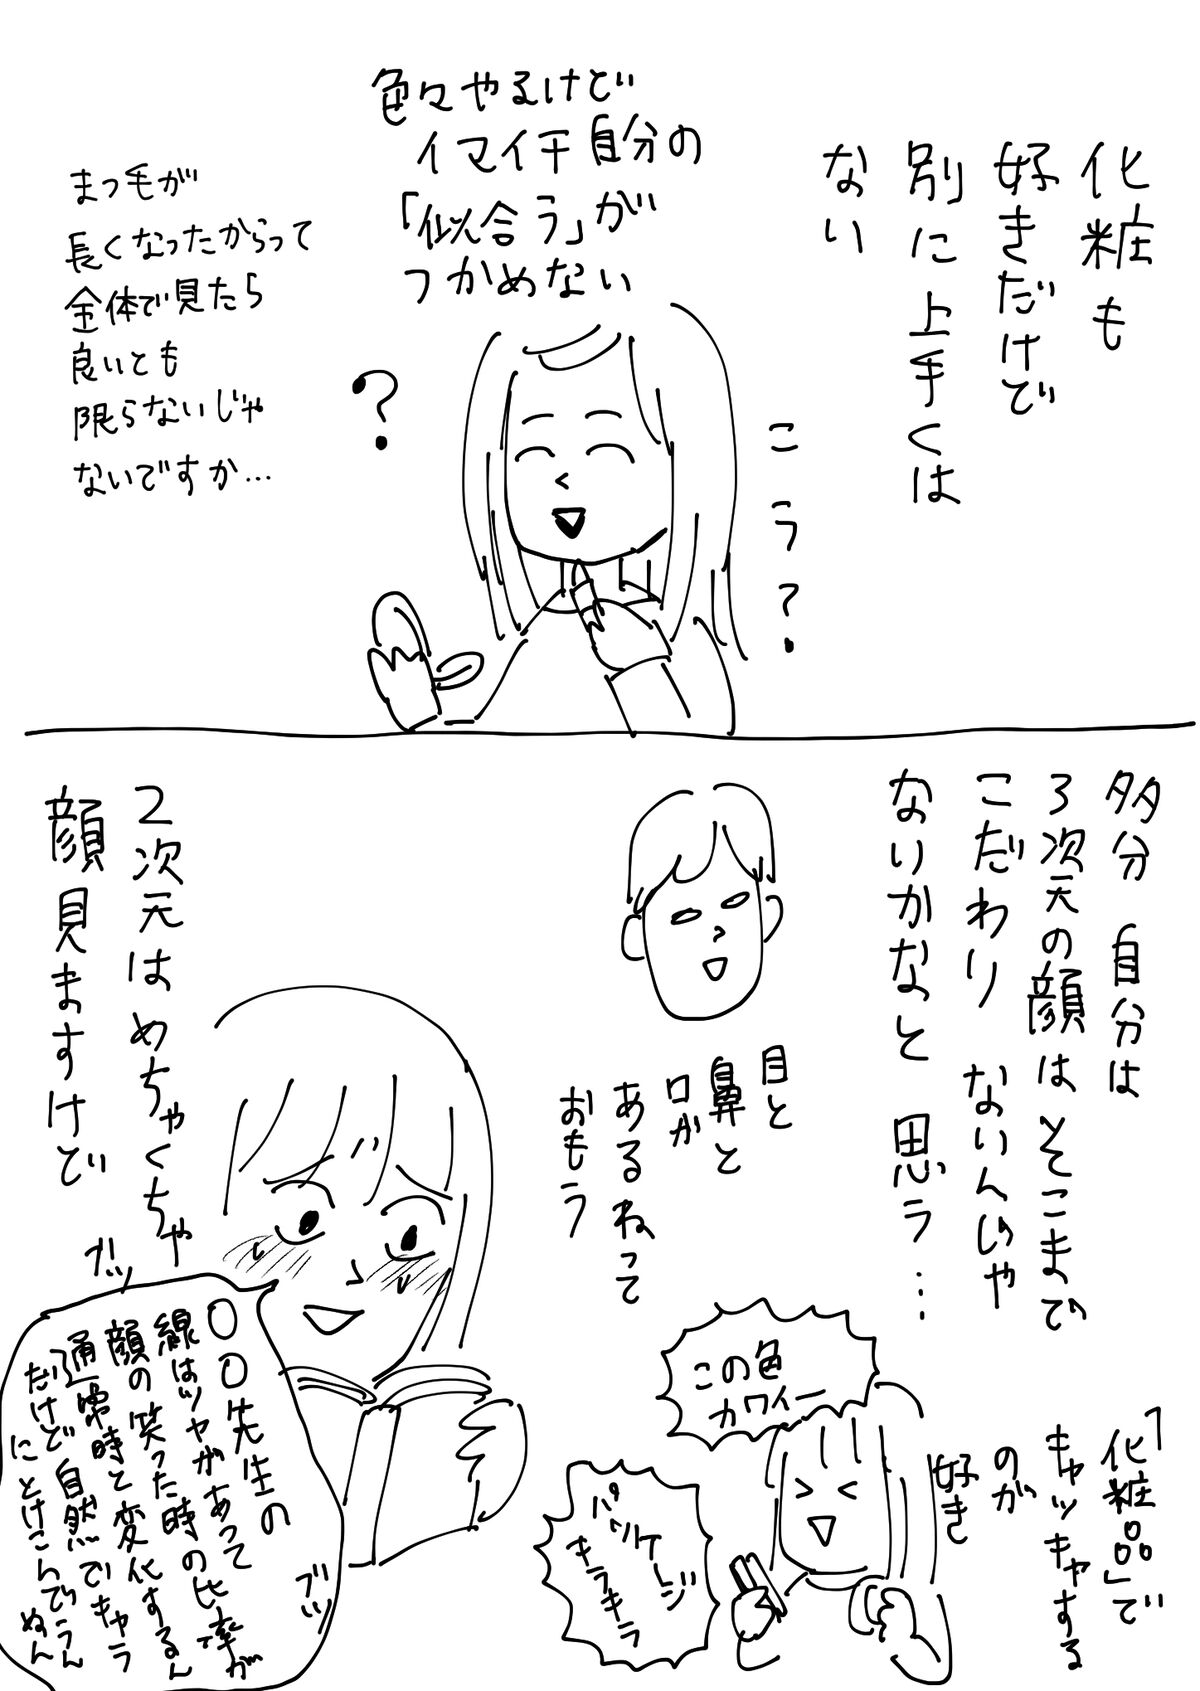 化粧も
好きだけど
別に上手くは
ない
色々やるけど
イマイチ自分の
「似合う」が
つかめない
こう?
?
まつ毛が
長くなったからって
全体で見たら
良いとも
限らないじゃ
ないですか…
多分自分は
3次元の顔はそこまで
こだわりないんじゃ
ないかなと思う…
目と
鼻と
口が
あるねって
おもう
「化粧品」で
キャッキャする
のが
好き
この色
カワイー
パッケージ
キラキラ
2次元はめちゃくちゃ
顔見ますけど
ブツ
〇〇先生の
線はツヤがあって
顔の笑った時の比率が
通常時と変化するん
だけど自然でキャラ
にとけこんでうん
ぬん
ブツ